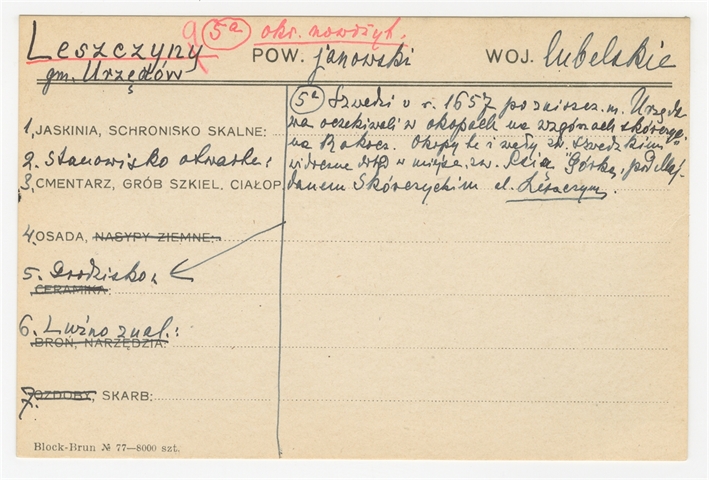 Leszczyny 9 5a okr. nowożyt.
gm. Urzędów POW. janowski WOJ. lubelskie
5a Szwedzi v r. 1657 po zniszcz. m. Urzędo
wa oczekiwali w okopach na wzgórzach
1, JASKINIA, SCHRONISKO SKALNE:
na Rakocz. Okopy te i wały zw. szwedzkim"
2. Stanowisko otwarte:
widoczne dziś w miejsc. zw. "Psia Górka, pod Maj-
3. CMENTARZ, GRÓB SZKIEL. CIAŁOP.
danem Skórczyckim al. Leszczyny.
4. OSADA, NASYPY ZIEMNE:
5. Grodzisko:
CERAMIKA:
6. Luźno znal.:
BROŃ, NARZĘDZIA:
7. OZDOBY, SKARB:
Block-Brun № 77—8000 szt.